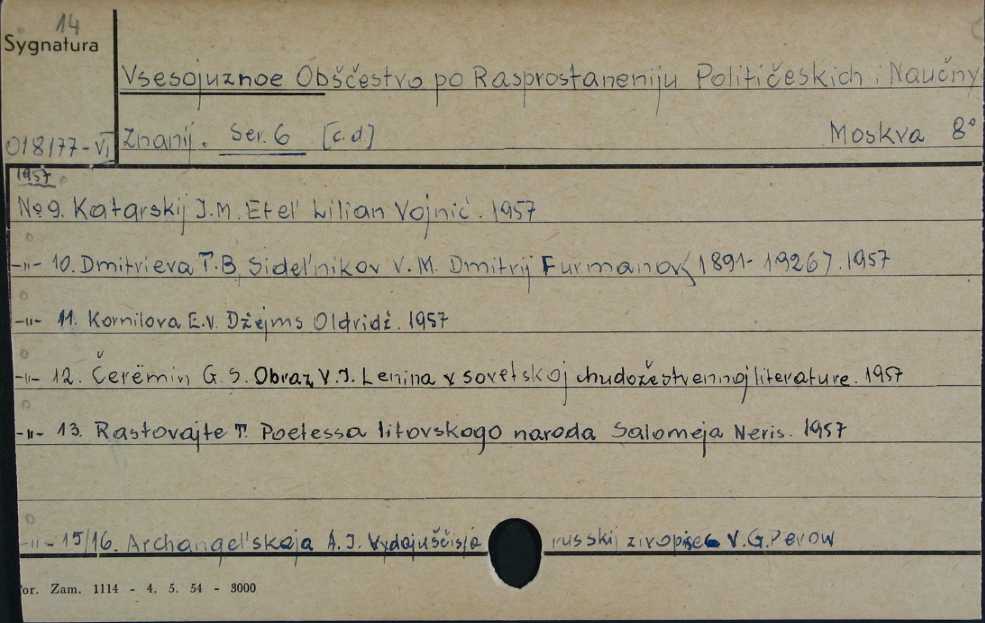 14
Sygnatura
Vsesojuznoe Obščestvo po Rasprostaneniju Političeskich i Naučny
018/77-VI Znanij. Ser. 6 [c.d.] Moskva 8°
1957
No 9. Katarskij J.M. Etel' Lilian Vojnić. 1957
-"- 10. Dmitrieva T.B, Sidel'nikov V.M. Dmitrij Furmanov /1891-1926/. 1957
-"- 11. Kornilova E.V. Džejms Oldridž. 1957
-"- 12. Čerëmin G.S. Obraz V.I. Lenina v sovetskoj chudožestvennoj literature. 1957
-"- 13. Rastovajte T. Poetessa litovskogo naroda Salomeja Neris. 1957
-"- 15/16. Archangel'skaja A.I. Vydajuščisja russkij zivopisec V.G. Perow
or. Zam. 1114 - 4. 5. 54 - 3000